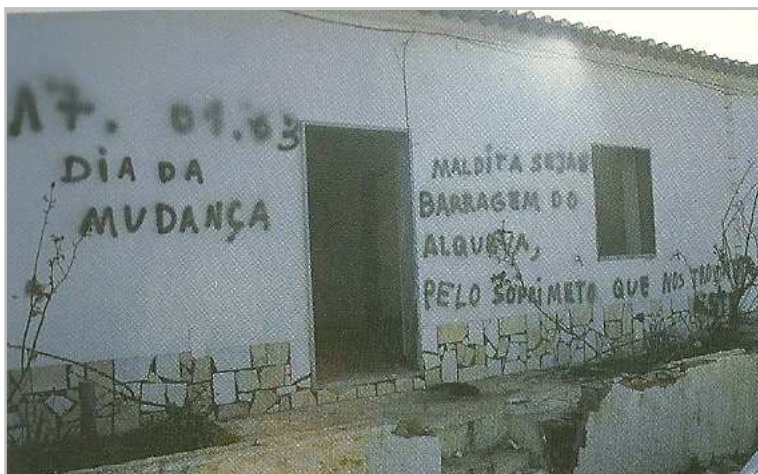 17. 01.03
DIA DA
MUDANÇA
MALDITA SEJA
BARRAGEM DO
ALQUEVA,
PELO SOFRIMETO QUE NOS